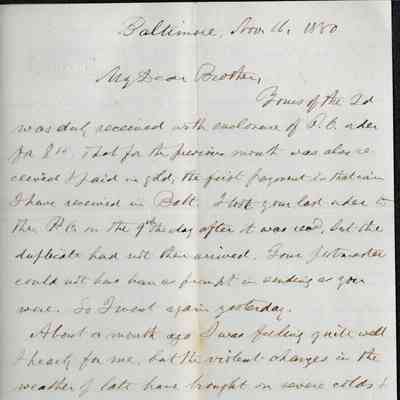 Baltimore, Nov. 11, 1880
My Dear Brother,
Yours of the 2d
was duly received with enclosure of P. O. order
for $10. That for the previous month was also re
ceived & paid in gold, the first payment in that coin
I have received in Balt. I took your last order to
the P. O. on the 9th the day after it was recd, but the
duplicate had not then arrived. Your postmaster
could not have been as prompt in sending as you
were. So I went again yesterday.
About a month ago I was feeling quite well
& hearty for me, but the violent changes in the
weather of late have brought on severe colds &